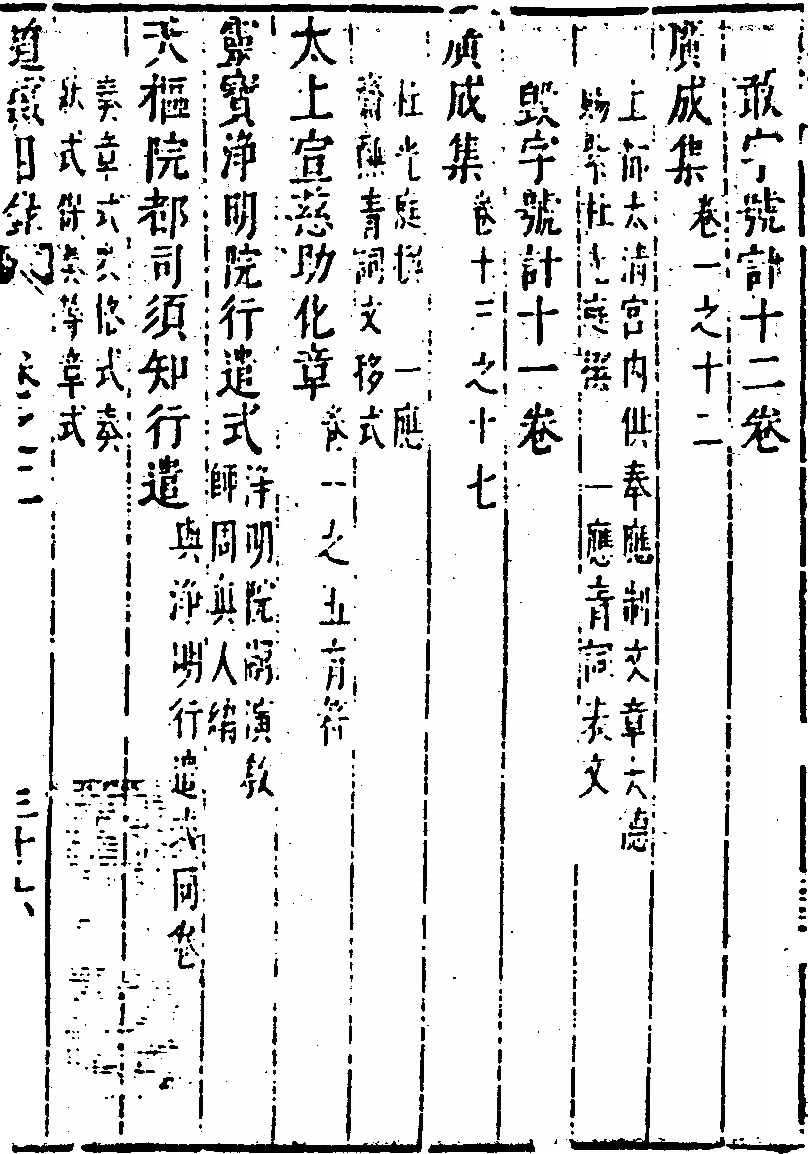 敢字號計十二卷
廣成集
卷一之十二
上都太清宮內供奉應制文章大德
賜紫杜光庭撰 一應青詞表文
毀字號計十一卷
廣成集
卷十三之十七
杜光庭撰 一應
齋醮青詞文移式
太上宣慈助化章
卷一之五有符
靈寶淨明院行遣式
淨明院嗣演教
師周真人緝
天樞院都司須知行遣
與淨明行遣式同卷
奏章式次格式奏
狀式備奏等章式
道藏目錄
卷之二
三十六